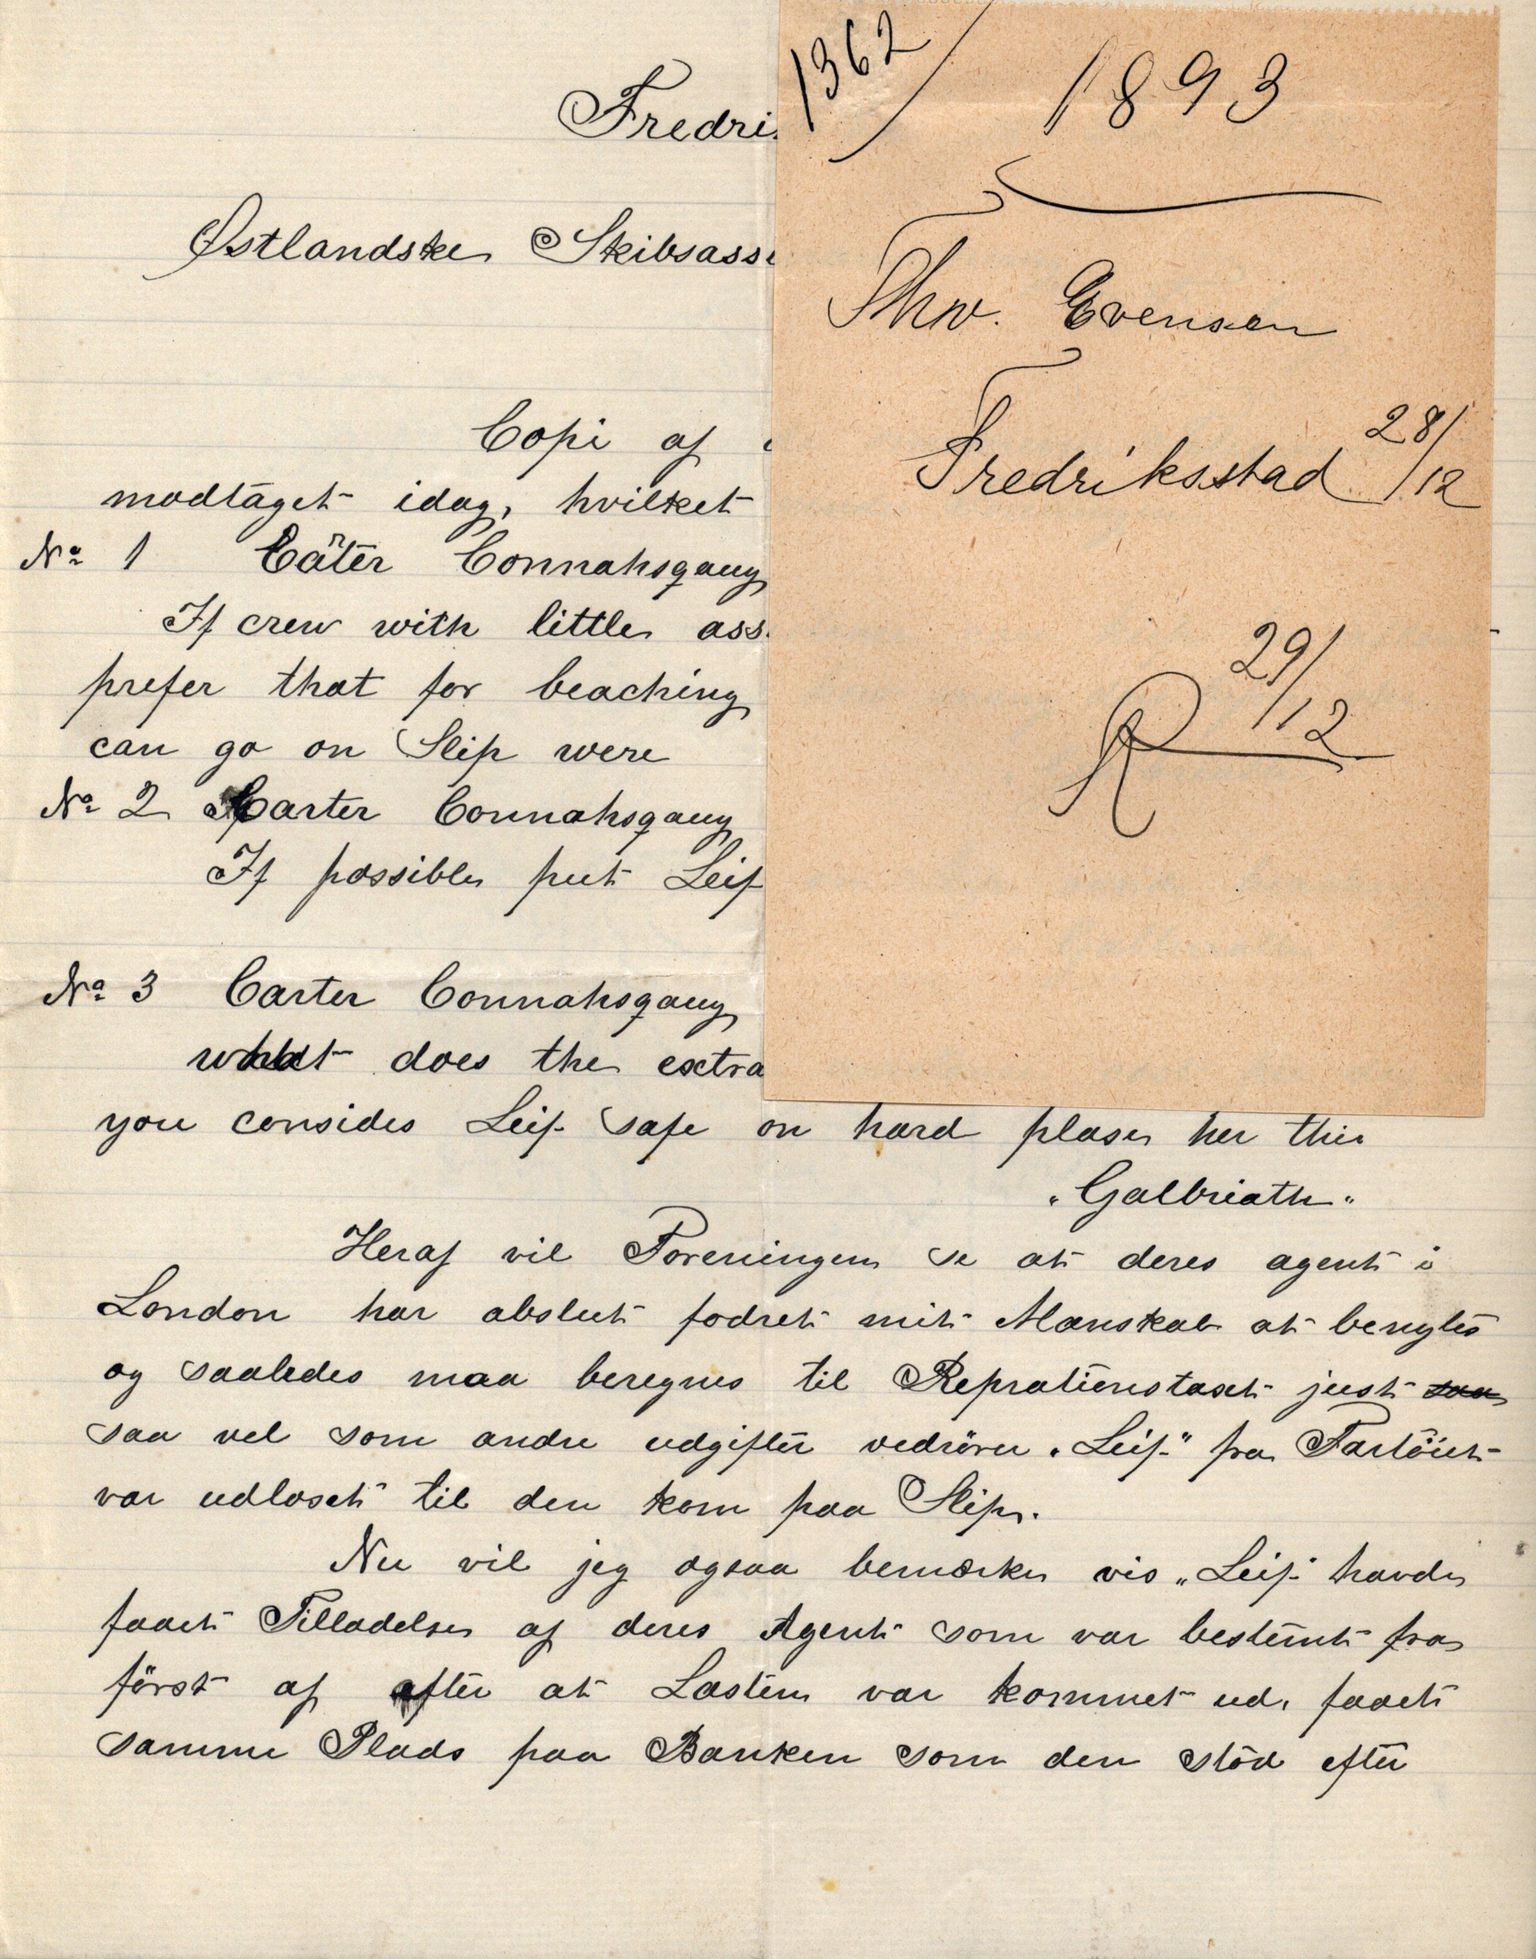 Fredri
Østlandske Skibsass
Copi af
modtaget idag, hvilket
No 1 Cater Connahsqauy
If crew with little ass
prefer that for beaching
can go on Slip were
No 2 Carter Connahsqauy
If possible put Leif
No 3 Carter Connahsqauy
what does the extra
you consides Leif safe on hard plase her thir
"Galbriath"
Heraf vil Foreningen se at deres agent i
London har abslut fodret mit Manskab at benytes
og saaledes maa beregnes til Reprationstaxt just saa
saa vel som andre udgifter vedrører "Leif" fra Fartöiet
var udloset til den kom paa Slip.
Nu vil jeg ogsaa bemærke vis "Leif" havde
faaet Tilladelse af deres Agent som var bestemt fra
först af efter at Lasten var kommet ud, faaet
samme Plads paa Banken som den stöd efter
1362
1893
Thv. Evensen
Fredriksstad 28/12
29/12